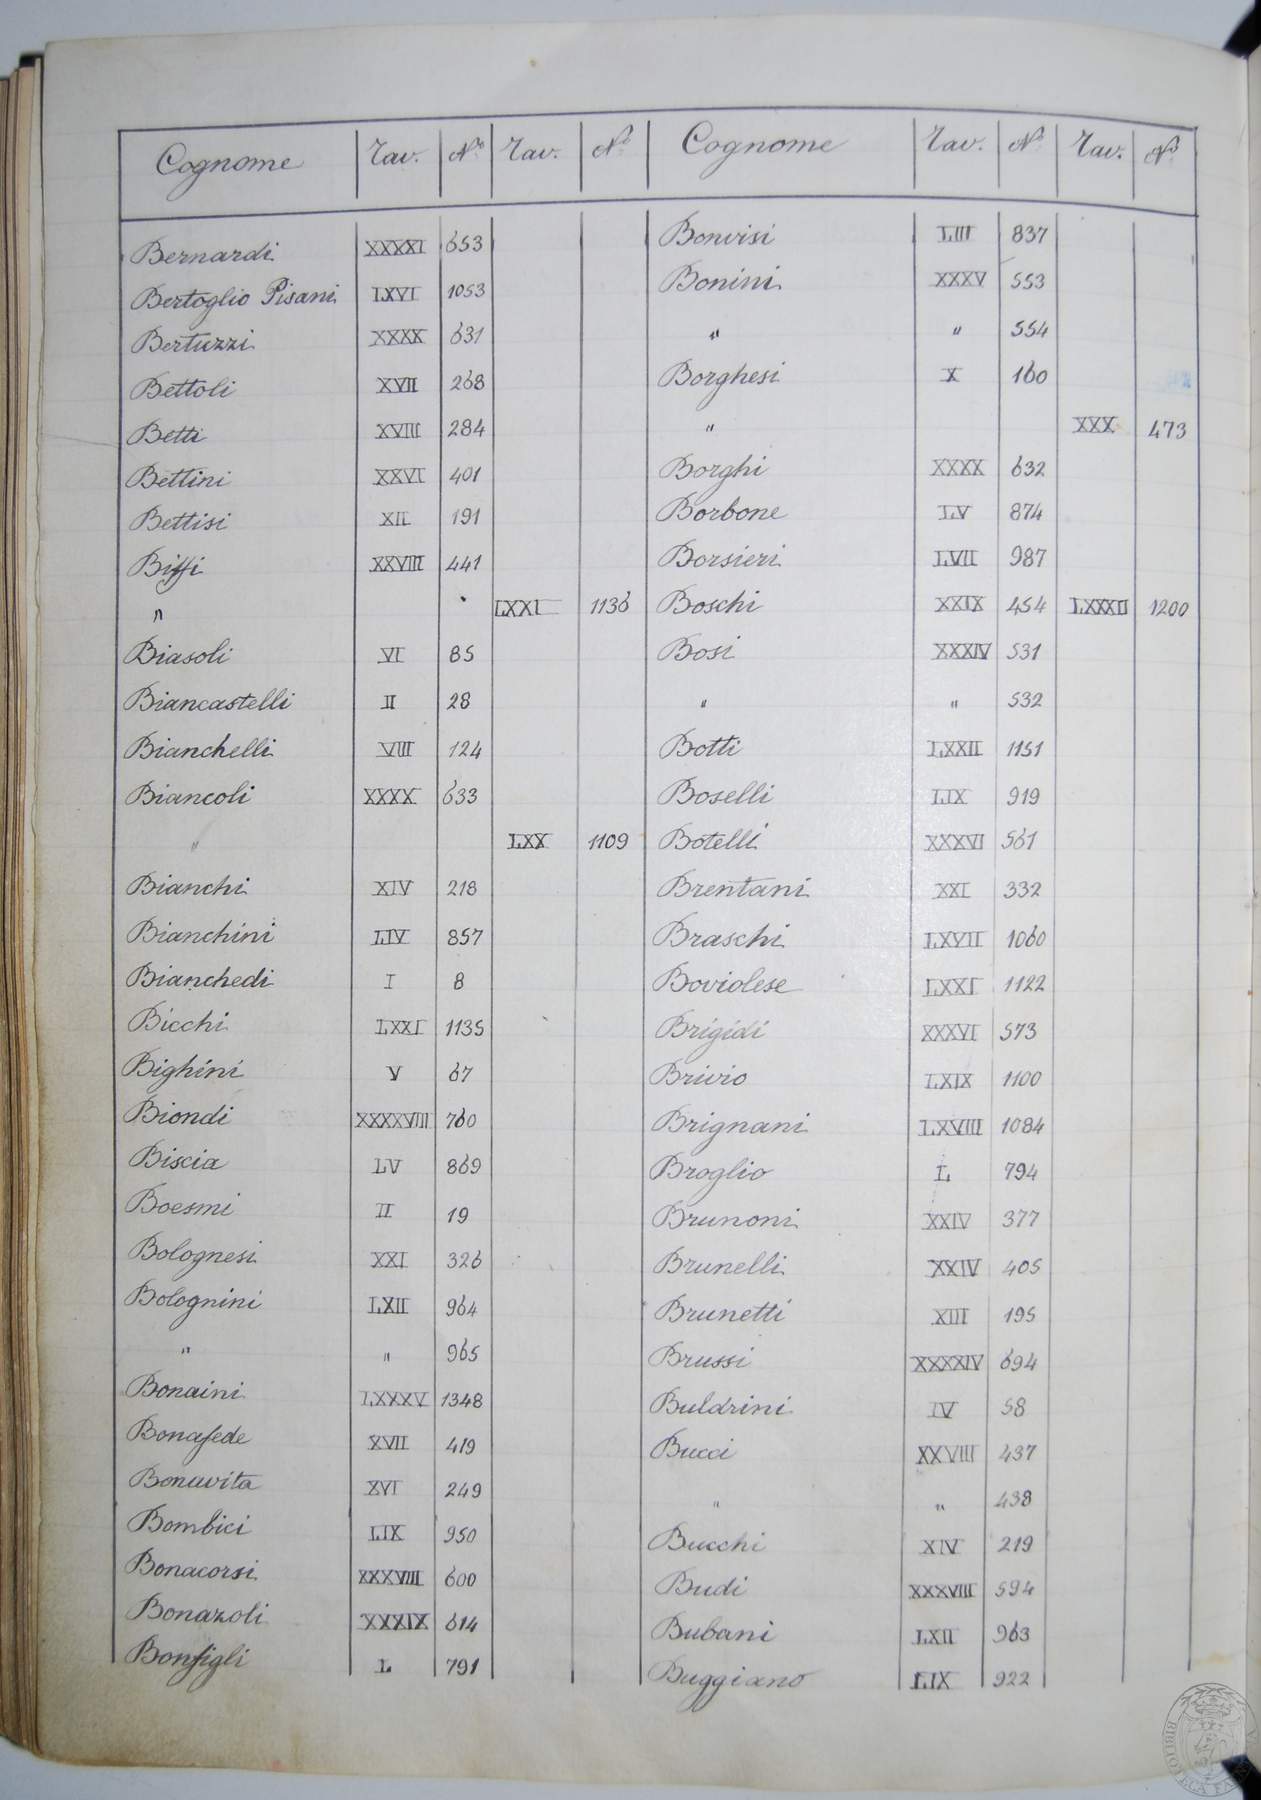 Cognome Tav. No Tav. No
Bernardi XXXXI 653
Bertoglio Pisani LXVI 1053
Bertuzzi XXXX 631
Bettoli XVII 268
Betti XVIII 284
Bettini XXVI 401
Bettisi XII 191
Biffi XXVIII 441
" LXXI 1136
Biasoli VI 85
Biancastelli II 28
Bianchelli VIII 124
Biancoli XXXX 633
" LXX 1109
Bianchi XIV 218
Bianchini LIV 857
Bianchedi I 8
Bicchi LXXI 1135
Bighini V 67
Biondi XXXXVIII 760
Biscia LV 869
Boesmi II 19
Bolognesi XXI 326
Bolognini LXII 964
" " 965
Bonaini LXXXV 1348
Bonafede XVII 419
Bonavita XVI 249
Bombici LIX 950
Bonacorsi XXXVIII 600
Bonazoli XXXIX 614
Bonfigli L 791
Cognome Tav. No Tav. No
Bonvisi LIII 837
Bonini XXXV 553
" " 554
Borghesi X 160
" XXX 473
Borghi XXXX 632
Borbone LV 874
Borsieri LVII 987
Boschi XXIX 454 LXXXII 1200
Bosi XXXIV 531
" " 532
Botti LXXII 1151
Boselli LIX 919
Botelli XXXVI 561
Brentani XXI 332
Braschi LXVII 1060
Boviolese LXXI 1122
Brigidi XXXVI 573
Brivio LXIX 1100
Brignani LXVIII 1084
Broglio L 794
Brunoni XXIV 377
Brunelli XXIV 405
Brunetti XIII 195
Brussi XXXXIV 694
Buldrini IV 58
Bucci XXVIII 437
" " 438
Bucchi XIV 219
Budi XXXVIII 594
Bubani LXII 963
Buggiano LIX 922